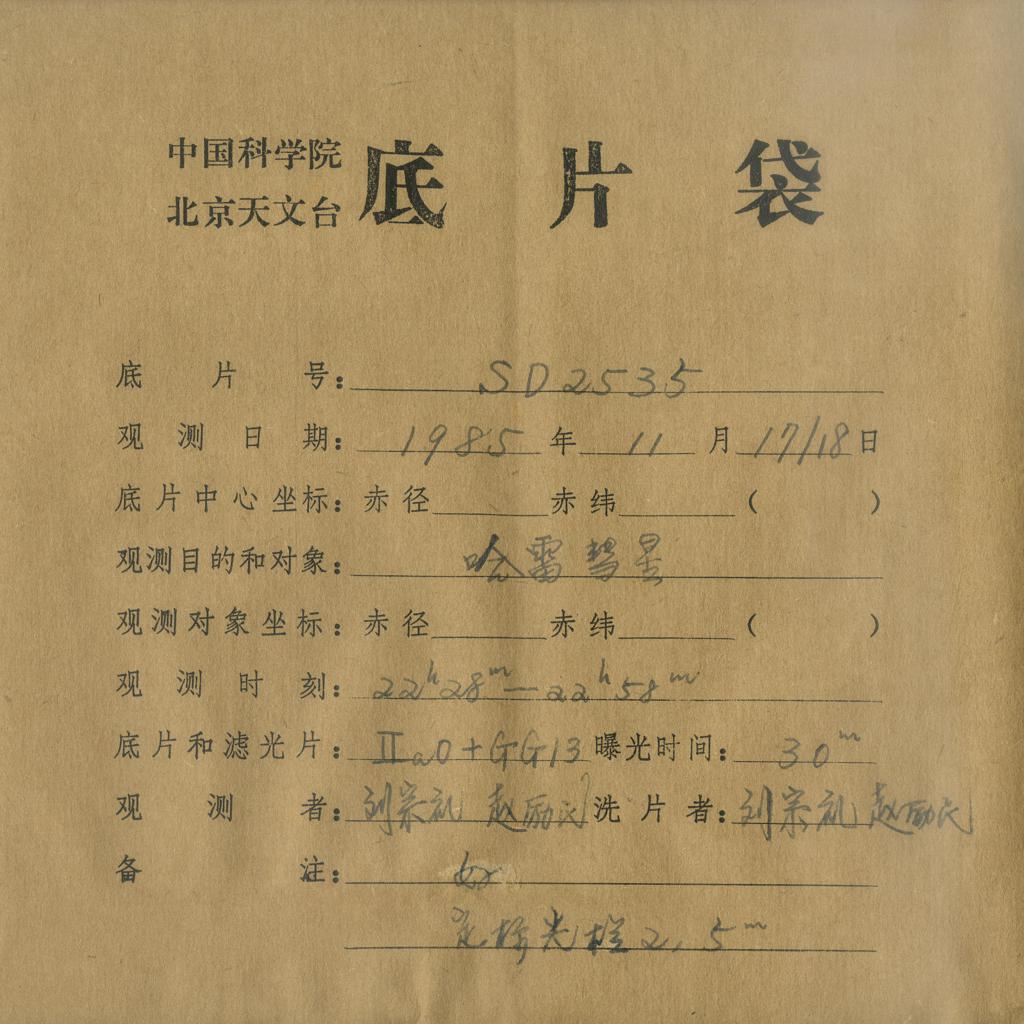 中国科学院
北京天文台
底片袋
底片号：SD2535
观测日期：1985年11月17/18日
底片中心坐标：赤径 赤纬 （ ）
观测目的和对象：哈雷彗星
观测对象坐标：赤径 赤纬 （ ）
观测时刻：22ʰ28ᵐ—22ʰ58ᵐ
底片和滤光片：Ⅱa0+GG13 曝光时间：30ᵐ
观测者：刘宗礼 赵励民 洗片者：刘宗礼 赵励民
备注：好
定标光栏2.5ᵐ